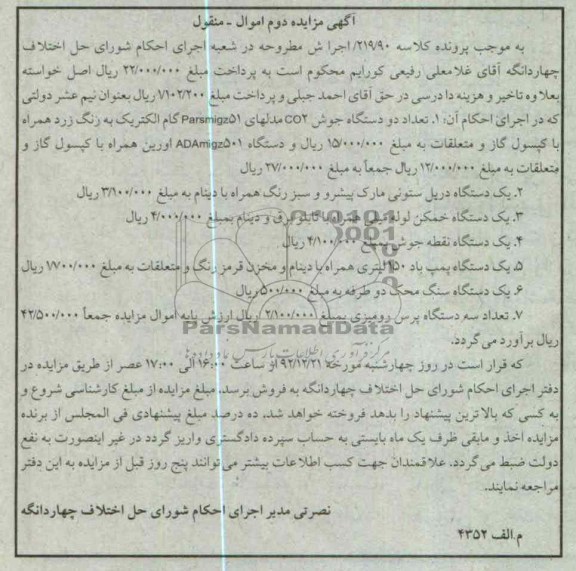 آگهی مزایده دوم اموال - منقول
به موجب پرونده کلاسه ۲۱۹/۹۰/ اجرا ش مطروحه در شعبه اجرای احکام شورای حل اختلاف
چهاردانگه آقای غلامعلی رفیعی کورایم محکوم است به پرداخت مبلغ ۲۲/۰۰۰/۰۰۰ ریال اصل خواسته
بعلاوه تاخیر و هزینه دادرسی در حق آقای احمد جبلی و پرداخت مبلغ ۷۱۰۲/۲۰۰ ریال بعنوان نیم عشر دولتی
که در اجرای احکام آن: ۱. تعداد دو دستگاه جوش CO۲ مدلهای Parsmigz۵۱ گام الکتریک به رنگ زرد همراه
با کپسول گاز و متعلقات به مبلغ ۱۵/۰۰۰/۰۰۰ ریال و دستگاه ADAmigz۵۰۱ اورین همراه با کپسول گاز و
متعلقات به مبلغ ۱۲/۰۰۰/۰۰۰ ریال جمعاً به مبلغ ۲۷/۰۰۰/۰۰۰ ریال
۲. یک دستگاه دریل ستونی مارک پیشرو و سبز رنگ همراه با دینام به مبلغ ۳/۱۰۰/۰۰۰ ریال
۳. یک دستگاه خمکن لوله تابلو برق و دینام بمبلغ ۴/۰۰۰/۰۰۰ ریال
۴. یک دستگاه نقطه جوش بمبلغ ۴/۱۰۰/۰۰۰ ریال
۵. یک دستگاه پمپ باد لیتری همراه با دینام و مخزن قرمز رنگ و متعلقات به مبلغ ۱/۷۰۰/۰۰۰ ریال
۶. یک دستگاه سنگ محک دو طرفه به مبلغ ۵۰۰/۰۰۰ ریال
۷. تعداد سه دستگاه پرس رومیزی بمبلغ ۲/۱۰۰/۰۰۰ ریال ارزش پایه اموال مزایده جمعاً ۴۲/۵۰۰/۰۰۰
ParsNamadData
ریال برآورد می گردد.
که قرار است در روز چهارشنبه مورخه ۹۲/۱۲/۲۱ از ساعت ۱۶:۰۰ الی ۱۷:۰۰ عصر از طریق مزایده در
دفتر اجرای احکام شورای حل اختلاف چهاردانگه به فروش برسد. مبلغ مزایده از مبلغ کارشناسی شروع و
به کسی که بالاترین پیشنهاد را بدهد فروخته خواهد شد. ده درصد مبلغ پیشنهادی فی المجلس از برنده
مزایده اخذ و مابقی ظرف یک ماه بایستی به حساب سپرده دادگستری واریز گردد در غیر اینصورت به نفع
دولت ضبط می گردد. علاقمندان جهت کسب اطلاعات بیشتر می توانند پنج روز قبل از مزایده به این دفتر
مراجعه نمایند.
نصرتی مدیر اجرای احکام شورای حل اختلاف چهاردانگه
م.الف ۴۳۵۲